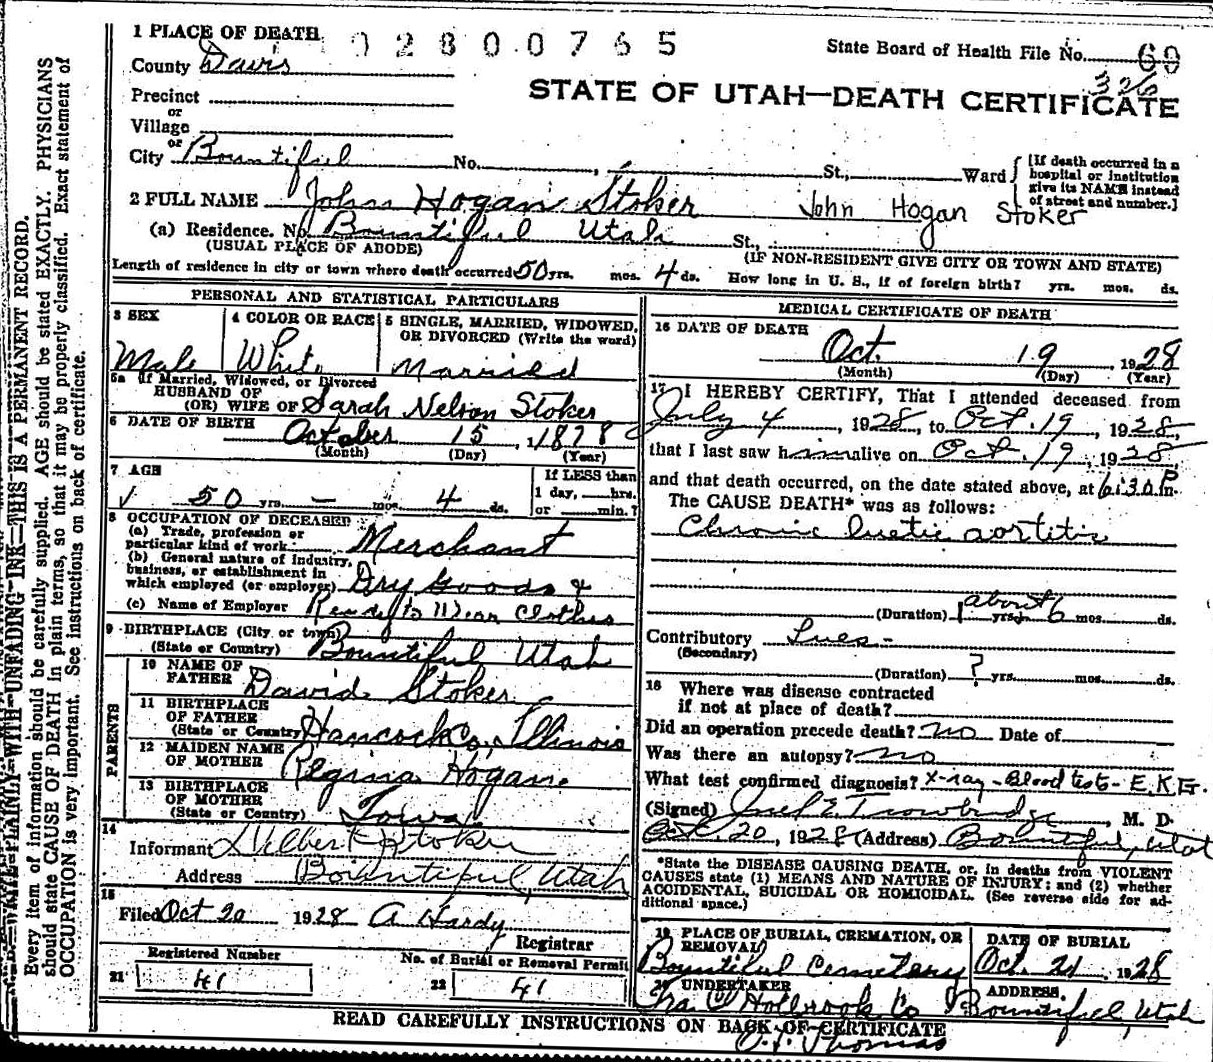 1 PLACE OF DEATH
9 2 8 0 0 0 7 6 5
State Board of Health File No. 69
326
County Davis
STATE OF UTAH—DEATH CERTIFICATE
Precinct
or
Village
or
City Bountiful No. St., Ward
[If death occurred in a hospital or institution give its NAME instead of street and number.]
2 FULL NAME John Hogan Stoker John Hogan Stoker
(a) Residence. No. Bountiful Utah St.,
(USUAL PLACE OF ABODE) (IF NON-RESIDENT GIVE CITY OR TOWN AND STATE)
Length of residence in city or town where death occurred 50 yrs. mos. 4 ds. How long in U. S., if of foreign birth? yrs. mos. ds.
PERSONAL AND STATISTICAL PARTICULARS
3 SEX
Male
4 COLOR OR RACE
White
5 SINGLE, MARRIED, WIDOWED,
OR DIVORCED (Write the word)
Married
5a If Married, Widowed, or Divorced
HUSBAND OF
(OR) WIFE OF Sarah Nelson Stoker
6 DATE OF BIRTH October 15, 1878
(Month) (Day) (Year)
7 AGE
50 yrs. — mos. 4 ds.
If LESS than
1 day, hrs.
or min.?
8 OCCUPATION OF DECEASED
(a) Trade, profession or
particular kind of work Merchant
(b) General nature of industry,
business, or establishment in
which employed (or employer) Dry Goods &
(c) Name of Employer Ready to Wear Clothes
9 BIRTHPLACE (City or town)
(State or Country) Bountiful Utah
PARENTS
10 NAME OF
FATHER David Stoker
11 BIRTHPLACE
OF FATHER
(State or Country) Hancock Co, Illinois
12 MAIDEN NAME
OF MOTHER Regina Hogan
13 BIRTHPLACE
OF MOTHER
(State or Country) Iowa
14
Informant Stoker
Address Bountiful, Utah
15
Filed Oct 20 1928 A Hardy
Registrar
Registered Number
21 41
No. of Burial or Removal Permit
22 41
MEDICAL CERTIFICATE OF DEATH
16 DATE OF DEATH
Oct. 19, 1928
(Month) (Day) (Year)
17 I HEREBY CERTIFY, That I attended deceased from
July 4, 1928, to Oct. 19, 1928,
that I last saw him alive on Oct. 19, 1928,
and that death occurred, on the date stated above, at 6:30 P.m.
The CAUSE DEATH* was as follows:
Chronic luetic aortitis
about
(Duration) 1 yrs. 6 mos. ds.
Contributory Lues -
(Secondary)
(Duration) ? yrs. mos. ds.
18 Where was disease contracted
if not at place of death?
Did an operation precede death? no Date of
Was there an autopsy? no
What test confirmed diagnosis? X-ray - Blood tests - E.K.G.
(Signed) Trowbridge, M. D.
Oct. 20, 1928 (Address) Bountiful, Utah
*State the DISEASE CAUSING DEATH, or, in deaths from VIOLENT
CAUSES state (1) MEANS AND NATURE OF INJURY; and (2) whether
ACCIDENTAL, SUICIDAL OR HOMICIDAL. (See reverse side for ad-
ditional space.)
19 PLACE OF BURIAL, CREMATION, OR
REMOVAL
Bountiful Cemetery
DATE OF BURIAL
Oct. 21, 1928
20 UNDERTAKER
Holbrook Co
ADDRESS
Bountiful, Utah
READ CAREFULLY INSTRUCTIONS ON BACK OF CERTIFICATE
Thomas
N. B.—WRITE PLAINLY—WITH UNFADING INK—THIS IS A PERMANENT RECORD.
Every item of information should be carefully supplied. AGE should be stated EXACTLY. PHYSICIANS
should state CAUSE OF DEATH in plain terms, so that it may be properly classified. Exact statement of
OCCUPATION is very important. See instructions on back of certificate.